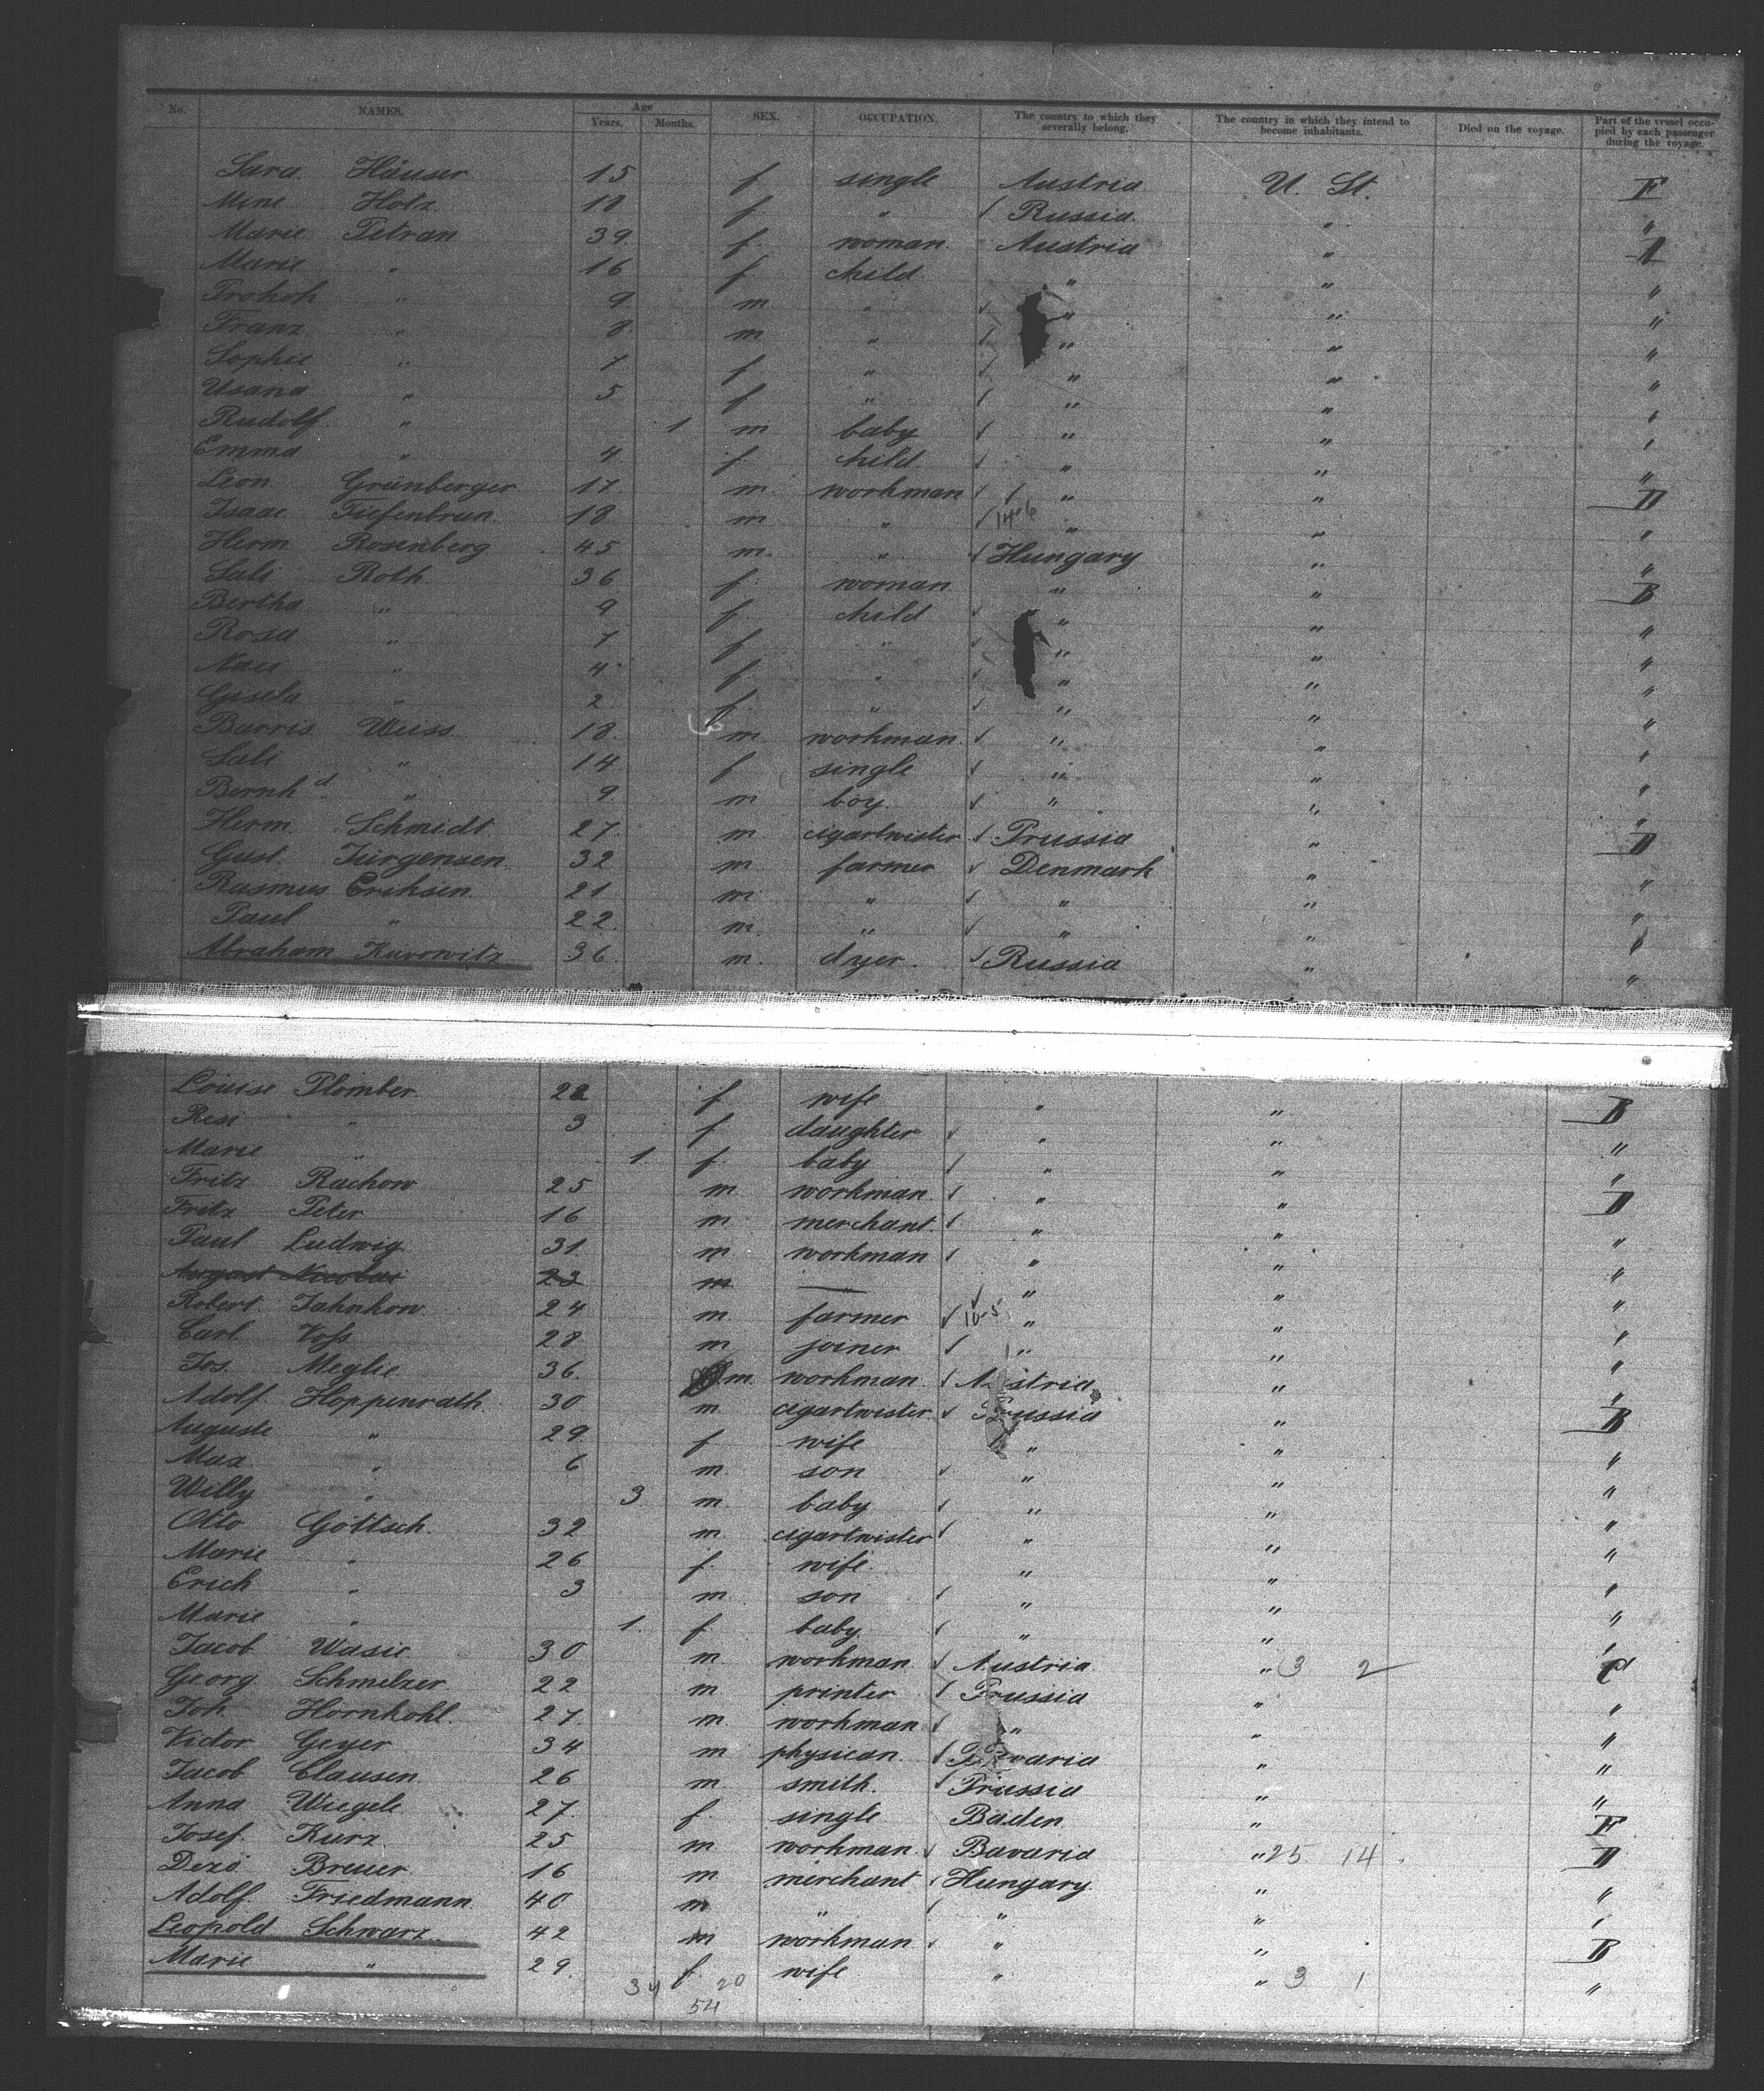 No. NAMES. Age Years. Months. SEX. OCCUPATION. The country to which they severally belong. The country in which they intend to become inhabitants. Died on the voyage. Part of the vessel occupied by each passenger during the voyage.
Sara Häuser 15 f single Austria U. St. F
Mine Hotz 18 f " √ Russia " "
Marie Petran 39 f woman Austria " A
Marie " 16 f child " " "
Prokoh " 9 m " √ " " "
Franz " 8 m " √ " " "
Sophie " 7 f " √ " " "
Usana " 5 f " √ " " "
Rudolf " 1 m baby √ " " "
Emma " 4 f child √ " " "
Leon Grünberger 17 m workman √ √ " " D
Isaac Tiefenbrun 18 m " √ 14-6 " " "
Herm Rosenberg 45 m " √ Hungary " "
Sali Roth 36 f woman " " B
Bertha " 9 f child √ " " "
Rosa " 7 f " √ " " "
" 4 f " √ " " "
Gisela " 2 f " √ " " "
Barris Weiss 18 m workman √ " " "
Sali " 14 f single √ " " "
Bernhd " 9 m boy √ " " "
Herm. Schmidt 27 m cigartwister √ Prussia " D
Gust. Jürgensen 32 m farmer √ Denmark " "
Rasmus Eriksen 21 m " √ " " "
Paul " 22 m " √ " " "
Abraham Kurowitz 36 m dyer √ Russia " "
Louise Plomber 22 f wife " " B
Resi " 3 f daughter √ " " "
Marie " 1 f baby √ " " "
Fritz Rachow 25 m workman √ " " D
Fritz Peter 16 m merchant √ " " "
Paul Ludwig 31 m workman √ " " "
August Nicolai 23 m — " " "
Robert Jahnkow 24 m farmer √ 10-5 " " "
Carl Voß 28 m joiner √ " " "
Jos. Meglie 36 m workman √ Austria " "
Adolf Hoppenrath 30 m cigartwister √ Prussia " B
Auguste " 29 f wife " " "
Max " 6 m son √ " " "
Willy " 3 m baby √ " " "
Otto Göttsch 32 m cigartwister √ " " "
Marie " 26 f wife " " "
Erich " 3 m son √ " " "
Marie " 1 f baby √ " " "
Jacob Wasic 30 m workman √ Austria " 3 2
Georg Schmelzer 22 m printer √ Prussia " "
Joh. Hornkohl 27 m workman √ " " "
Victor Geyer 34 m physican √ Bavaria " "
Jacob Clausen 26 m smith √ Prussia " "
Anna Wiegele 27 f single Baden " F
Josef Kurz 25 m workman √ Bavaria " 25 14 D
Dezsö Breuer 16 m merchant √ Hungary " "
Adolf Friedmann 40 m " √ " " "
Leopold Schwarz 42 m workman √ " " B
Marie " 29 f wife " " 3 1 "
34 20
54